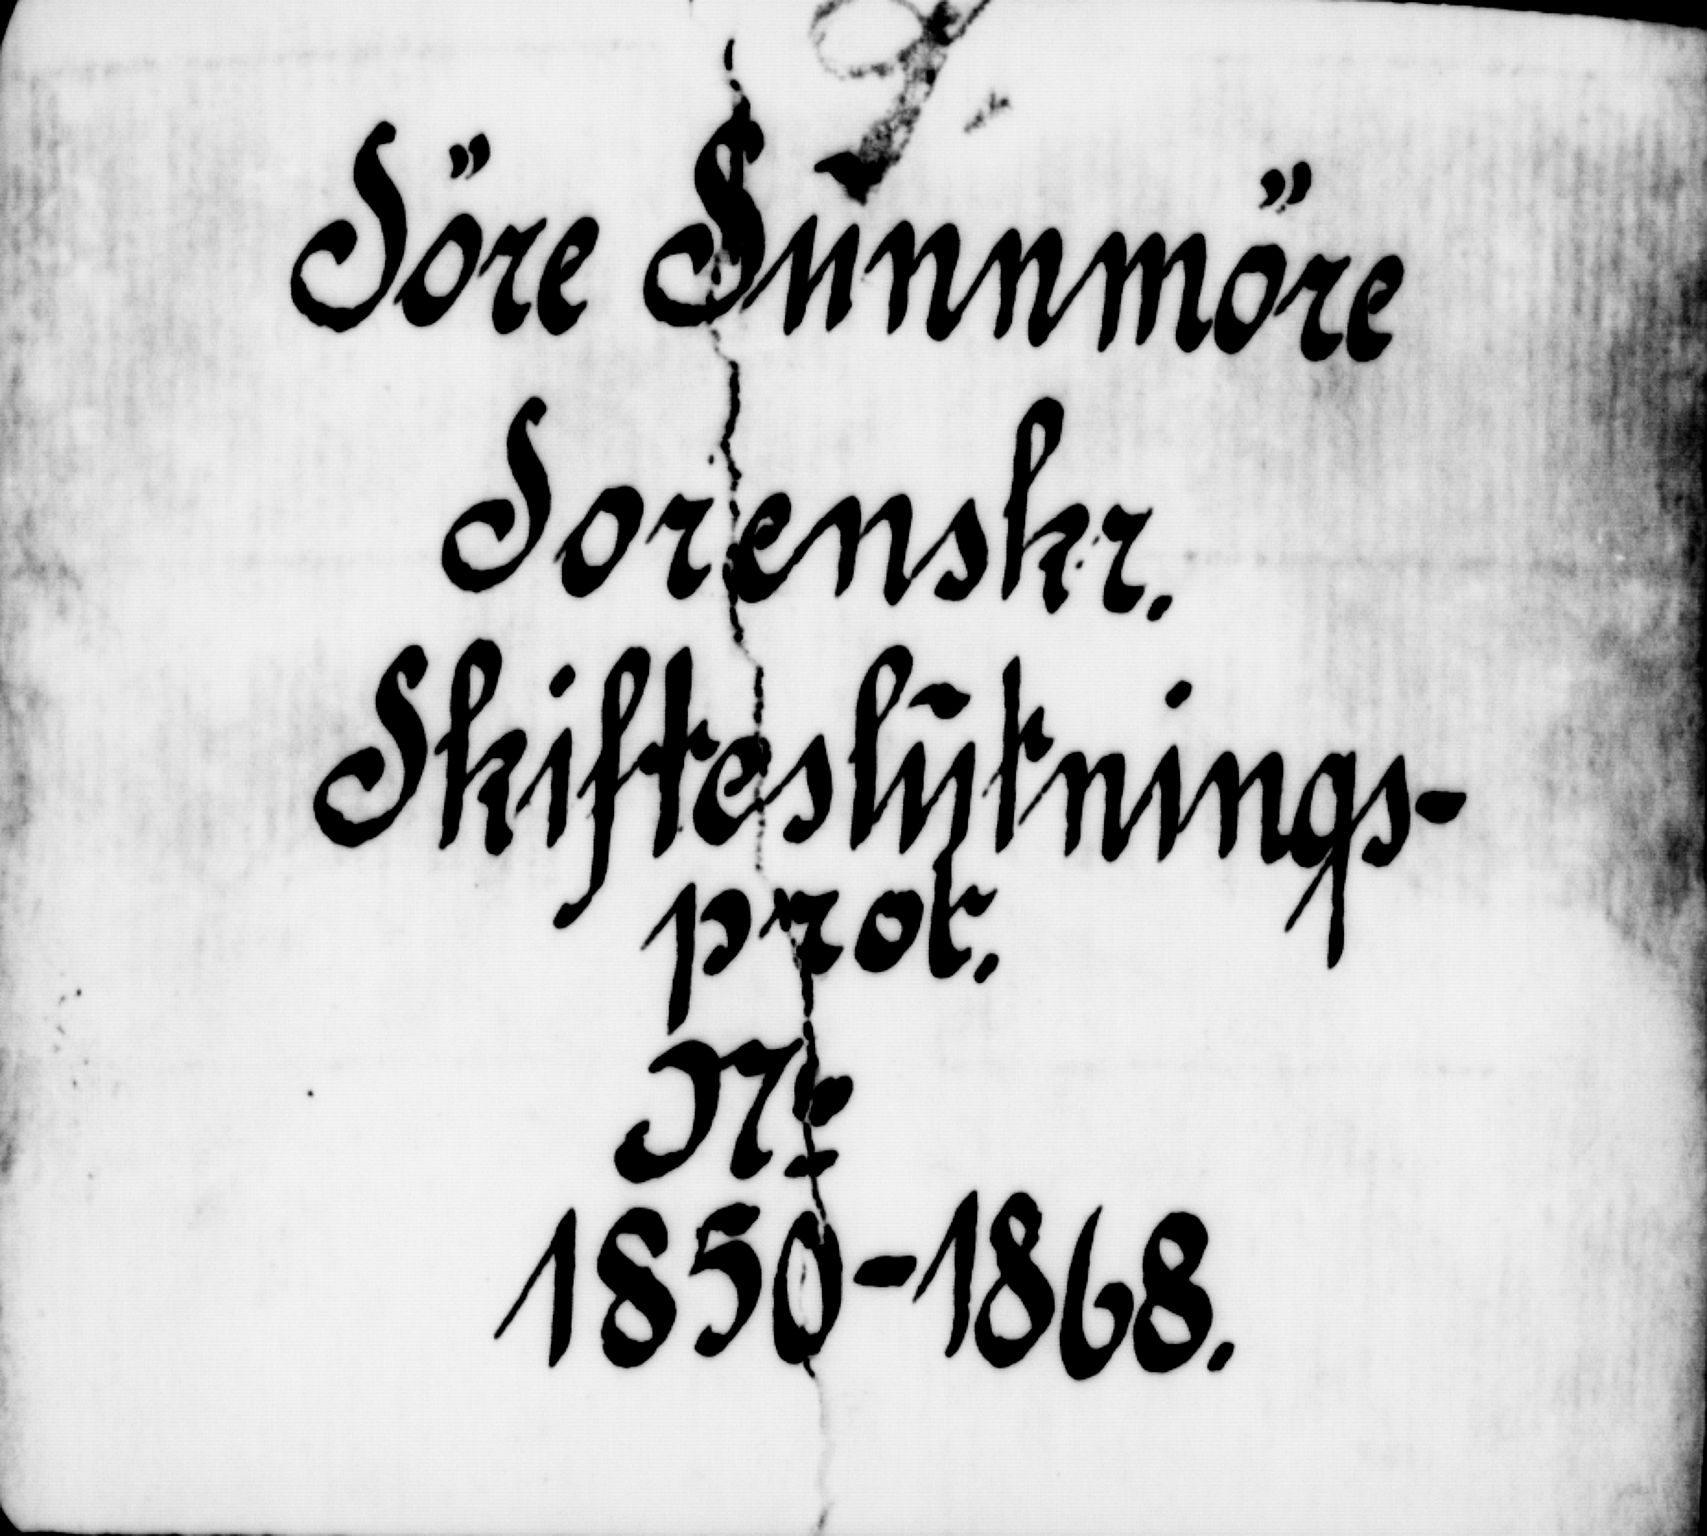 Söre Sunnmöre
Sorenskr.
Skifteslutnings-
prot.
Nr
1850-1868.